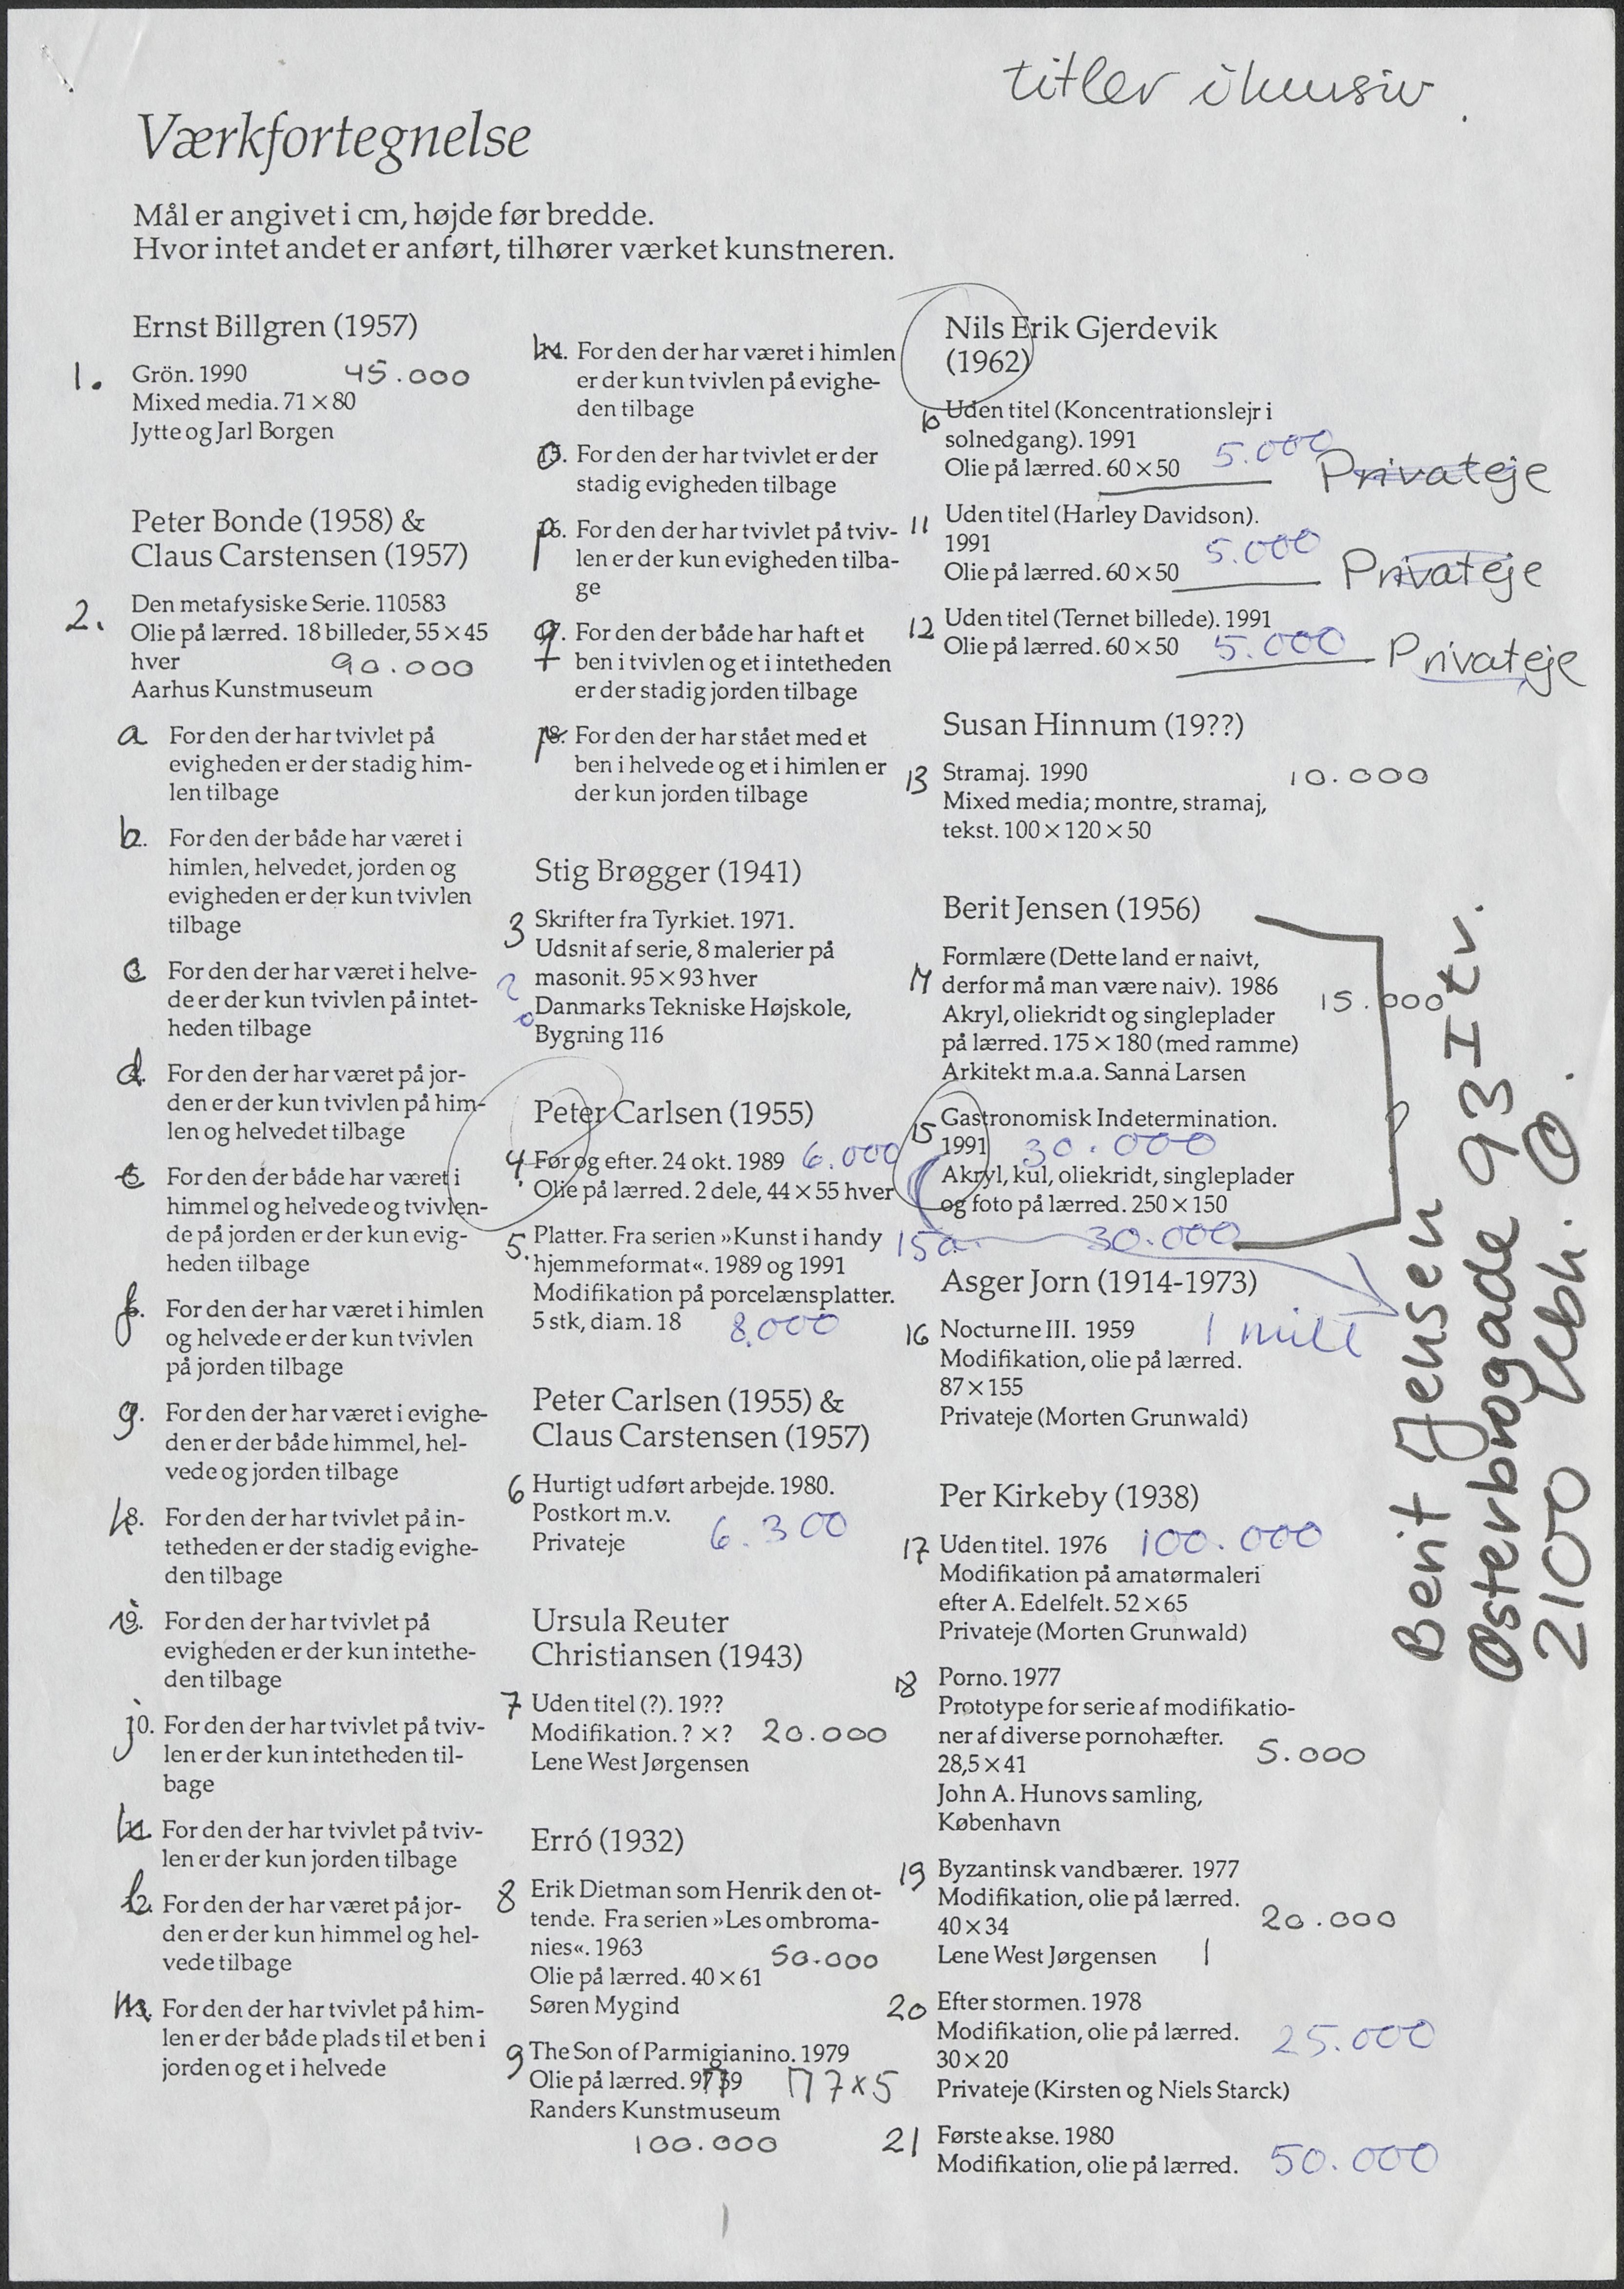 titler i kursiv.
Værkfortegnelse
Mål er angivet i cm, højde før bredde.
Hvor intet andet er anført, tilhører værket kunstneren.
Ernst Billgren (1957)
1. Grön. 1990 45.000
Mixed media. 71 × 80
Jytte og Jarl Borgen
Peter Bonde (1958) &
Claus Carstensen (1957)
2. Den metafysiske Serie. 110583
Olie på lærred. 18 billeder, 55 × 45
hver 90.000
Aarhus Kunstmuseum
a For den der har tvivlet på
evigheden er der stadig him-
len tilbage
b. For den der både har været i
himlen, helvedet, jorden og
evigheden er der kun tvivlen
tilbage
c For den der har været i helve-
de er der kun tvivlen på intet-
heden tilbage
d. For den der har været på jor-
den er der kun tvivlen på him-
len og helvedet tilbage
e For den der både har været i
himmel og helvede og tvivlen-
de på jorden er der kun evig-
heden tilbage
f. For den der har været i himlen
og helvede er der kun tvivlen
på jorden tilbage
g. For den der har været i evighe-
den er der både himmel, hel-
vede og jorden tilbage
h8. For den der har tvivlet på in-
tetheden er der stadig evighe-
den tilbage
i9. For den der har tvivlet på
evigheden er der kun intethe-
den tilbage
j0. For den der har tvivlet på tviv-
len er der kun intetheden til-
bage
k. For den der har tvivlet på tviv-
len er der kun jorden tilbage
l2. For den der har været på jor-
den er der kun himmel og hel-
vede tilbage
m. For den der har tvivlet på him-
len er der både plads til et ben i
jorden og et i helvede
n4. For den der har været i himlen
er der kun tvivlen på evighe-
den tilbage
o. For den der har tvivlet er der
stadig evigheden tilbage
p6. For den der har tvivlet på tviv-
len er der kun evigheden tilba-
ge
q. For den der både har haft et
ben i tvivlen og et i intetheden
er der stadig jorden tilbage
r8. For den der har stået med et
ben i helvede og et i himlen er
der kun jorden tilbage
Stig Brøgger (1941)
3 Skrifter fra Tyrkiet. 1971.
Udsnit af serie, 8 malerier på
masonit. 95 × 93 hver
? Danmarks Tekniske Højskole,
Bygning 116
Peter Carlsen (1955)
4. Før og efter. 24 okt. 1989 6.000
Olie på lærred. 2 dele, 44 × 55 hver
5. Platter. Fra serien »Kunst i handy
hjemmeformat«. 1989 og 1991
Modifikation på porcelænsplatter.
5 stk, diam. 18 8.000
Peter Carlsen (1955) &
Claus Carstensen (1957)
6 Hurtigt udført arbejde. 1980.
Postkort m.v.
Privateje 6.300
Ursula Reuter
Christiansen (1943)
7 Uden titel (?). 19??
Modifikation. ? ×? 20.000
Lene West Jørgensen
Erró (1932)
8 Erik Dietman som Henrik den ot-
tende. Fra serien »Les ombroma-
nies«. 1963
50.000
Olie på lærred. 40 × 61
Søren Mygind
9 The Son of Parmigianino. 1979
Olie på lærred. 97
Randers Kunstmuseum
100.000
Nils Erik Gjerdevik
(1962)
10 Uden titel (Koncentrationslejr i
solnedgang). 1991
Olie på lærred. 60 × 50 5.000 Privateje
11 Uden titel (Harley Davidson).
1991
Olie på lærred. 60 × 50 5.000 Privateje
12 Uden titel (Ternet billede). 1991
Olie på lærred. 60 × 50 5.000 Privateje
Susan Hinnum (19??)
13 Stramaj. 1990 10.000
Mixed media; montre, stramaj,
tekst. 100 × 120 × 50
Berit Jensen (1956)
Formlære (Dette land er naivt,
14 derfor må man være naiv). 1986 15.000
Akryl, oliekridt og singleplader
på lærred. 175 × 180 (med ramme)
Arkitekt m.a.a. Sanna Larsen
15 Gastronomisk Indetermination.
1991 30.000
Akryl, kul, oliekridt, singleplader
og foto på lærred. 250 × 150
15a. 30.000
Asger Jorn (1914-1973)
16 Nocturne III. 1959 1 mill
Modifikation, olie på lærred.
87 × 155
Privateje (Morten Grunwald)
Per Kirkeby (1938)
17 Uden titel. 1976 100.000
Modifikation på amatørmaleri
efter A. Edelfelt. 52 × 65
Privateje (Morten Grunwald)
18 Porno. 1977
Prototype for serie af modifikatio-
ner af diverse pornohæfter.
28,5 × 41 5.000
John A. Hunovs samling,
København
19 Byzantinsk vandbærer. 1977
Modifikation, olie på lærred.
40 × 34 20.000
Lene West Jørgensen
20 Efter stormen. 1978
Modifikation, olie på lærred. 25.000
30 × 20
Privateje (Kirsten og Niels Starck)
21 Første akse. 1980
Modifikation, olie på lærred. 50.000
Berit Jensen
Østerbrogade 93 I tv.
2100 Kbh. Ø.